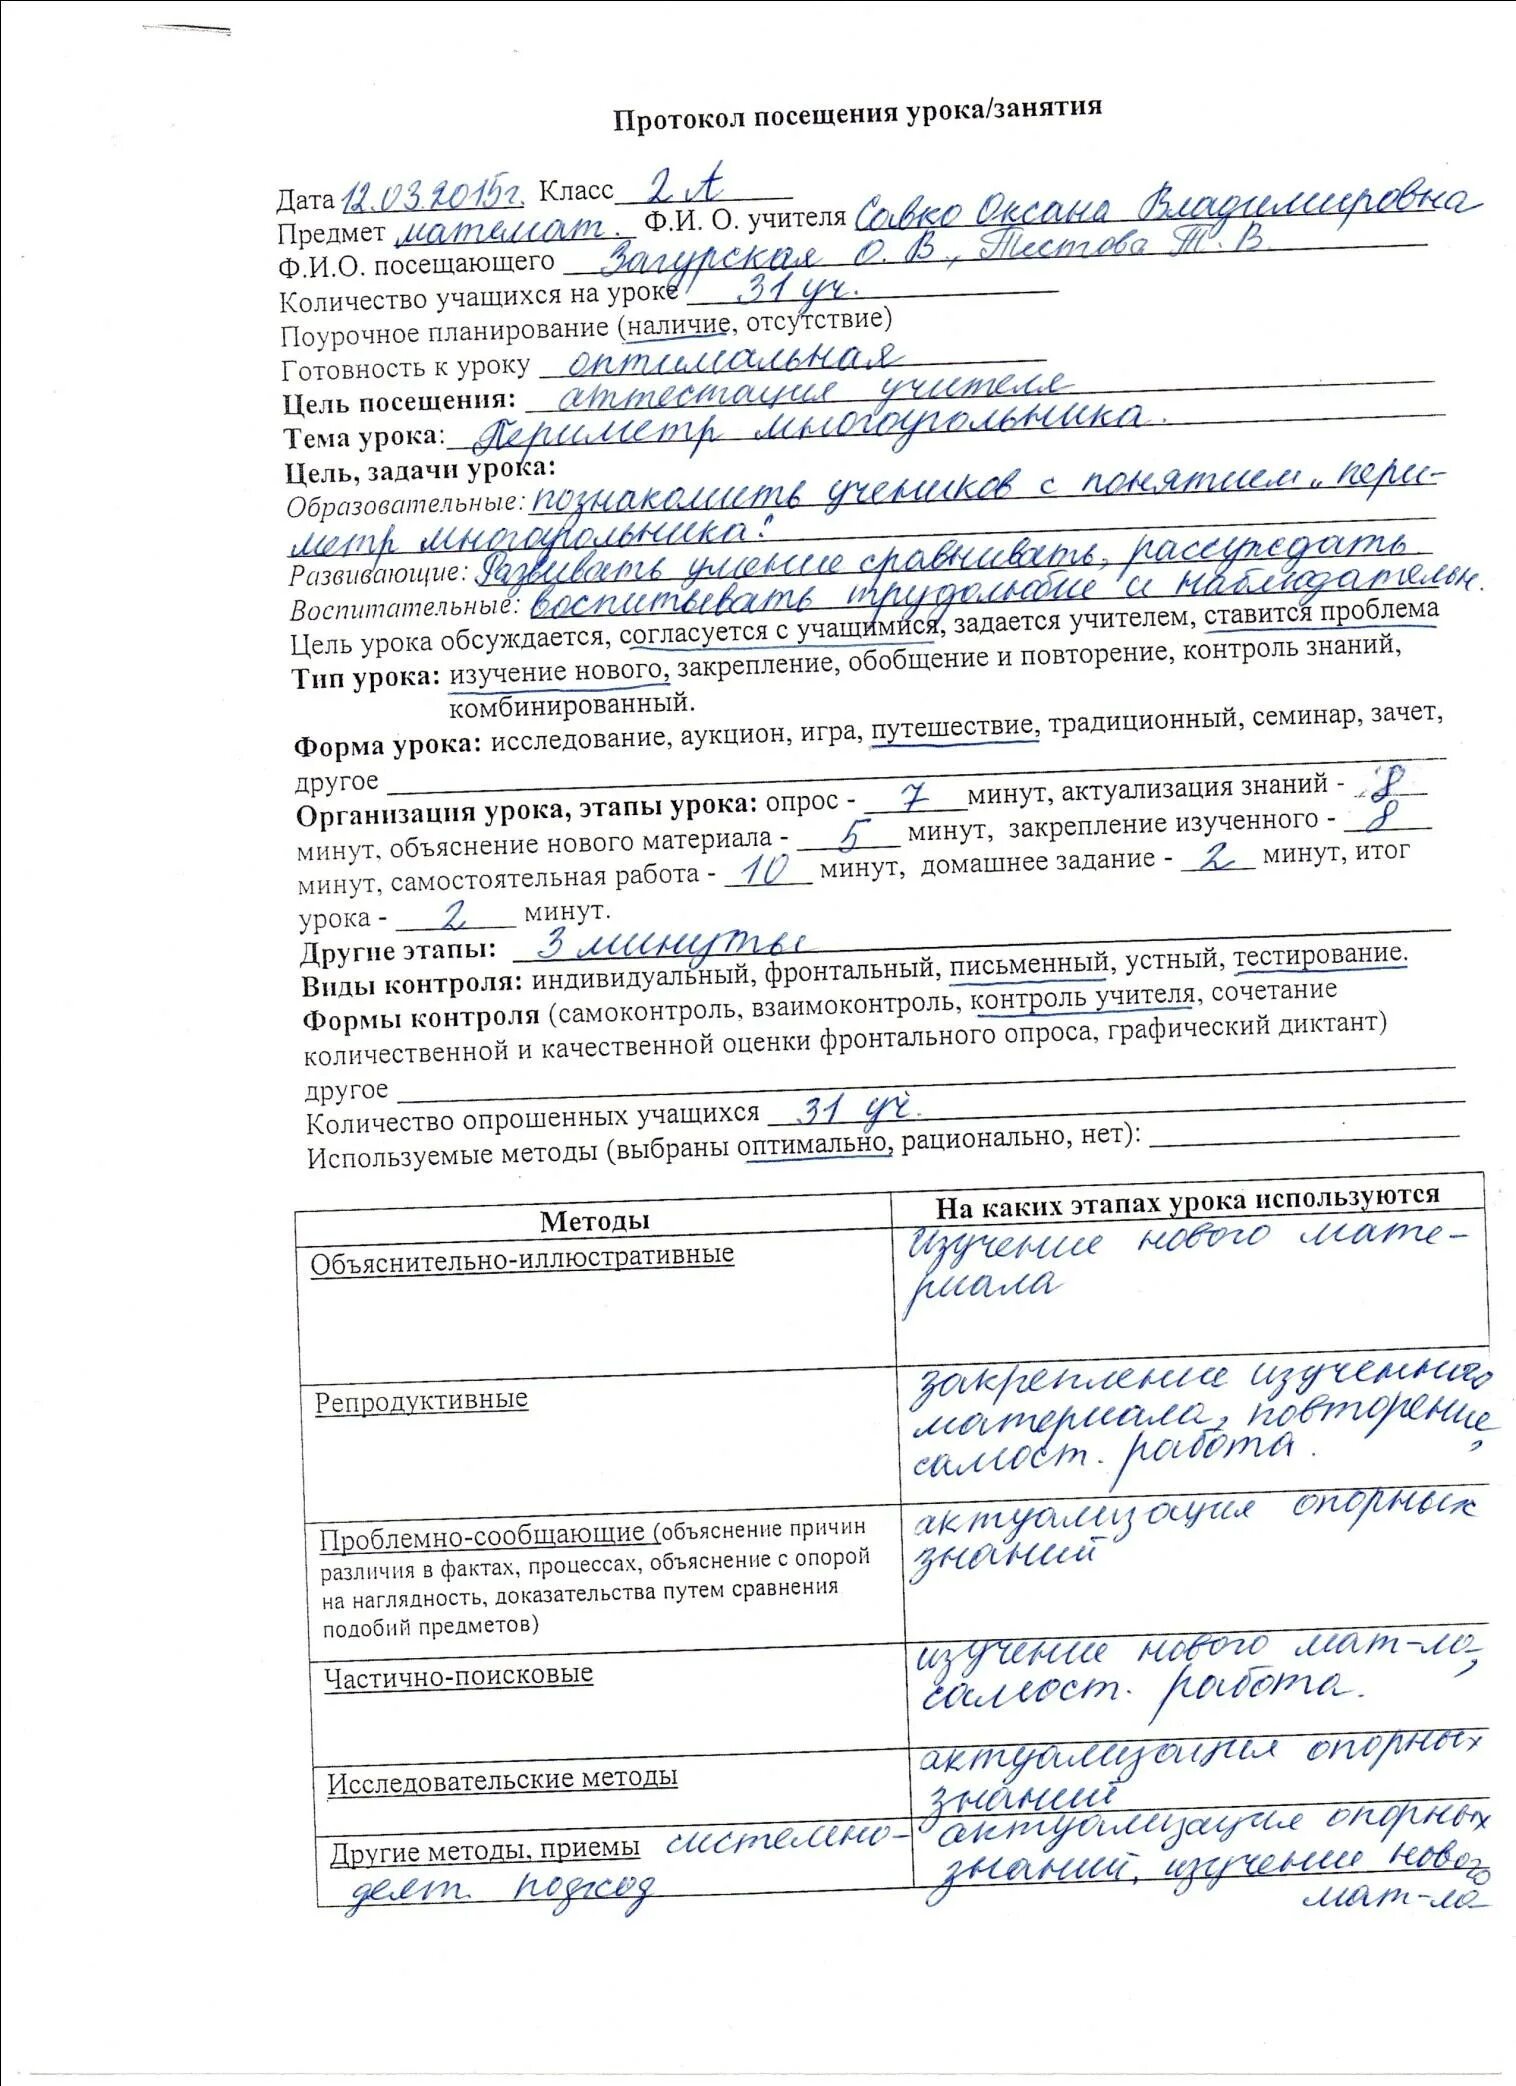 Протокол посещения урока/занятия
Дата 12.03.2015г. Класс 2 А
Предмет математ. Ф.И. О. учителя Савко Оксана Владимировна
Ф.И.О. посещающего Загурская О. В., Тестова Т. В.
Количество учащихся на уроке 31 уч.
Поурочное планирование (наличие, отсутствие)
Готовность к уроку оптимальная
Цель посещения: аттестация учителя
Тема урока: Периметр многоугольника.
Цель, задачи урока:
Образовательные: познакомить учеников с понятием „пери-
метр многоугольника".
Развивающие: Развивать умение сравнивать, рассуждать
Воспитательные: воспитывать трудолюбие и наблюдательн.
Цель урока обсуждается, согласуется с учащимися, задается учителем, ставится проблема
Тип урока: изучение нового, закрепление, обобщение и повторение, контроль знаний,
комбинированный.
Форма урока: исследование, аукцион, игра, путешествие, традиционный, семинар, зачет,
другое
Организация урока, этапы урока: опрос - 7 минут, актуализация знаний - 8
минут, объяснение нового материала - 5 минут, закрепление изученного - 8
минут, самостоятельная работа - 10 минут, домашнее задание - 2 минут, итог
урока - 2 минут.
Другие этапы: 3 минуты
Виды контроля: индивидуальный, фронтальный, письменный, устный, тестирование.
Формы контроля (самоконтроль, взаимоконтроль, контроль учителя, сочетание
количественной и качественной оценки фронтального опроса, графический диктант)
другое
Количество опрошенных учащихся 31 уч.
Используемые методы (выбраны оптимально, рационально, нет):
Методы На каких этапах урока используются
Объяснительно-иллюстративные изучение нового мате-
риала
Репродуктивные закрепление изученного
материала, повторение,
самост. работа.
Проблемно-сообщающие (объяснение причин актуализация опорных
различия в фактах, процессах, объяснение с опорой знаний
на наглядность, доказательства путем сравнения
подобий предметов)
Частично-поисковые изучение нового мат-ла,
самост. работа.
Исследовательские методы актуализация опорных
знаний
Другие методы, приемы системно- актуализация опорных
деят. подход знаний, изучение нового
мат-ла